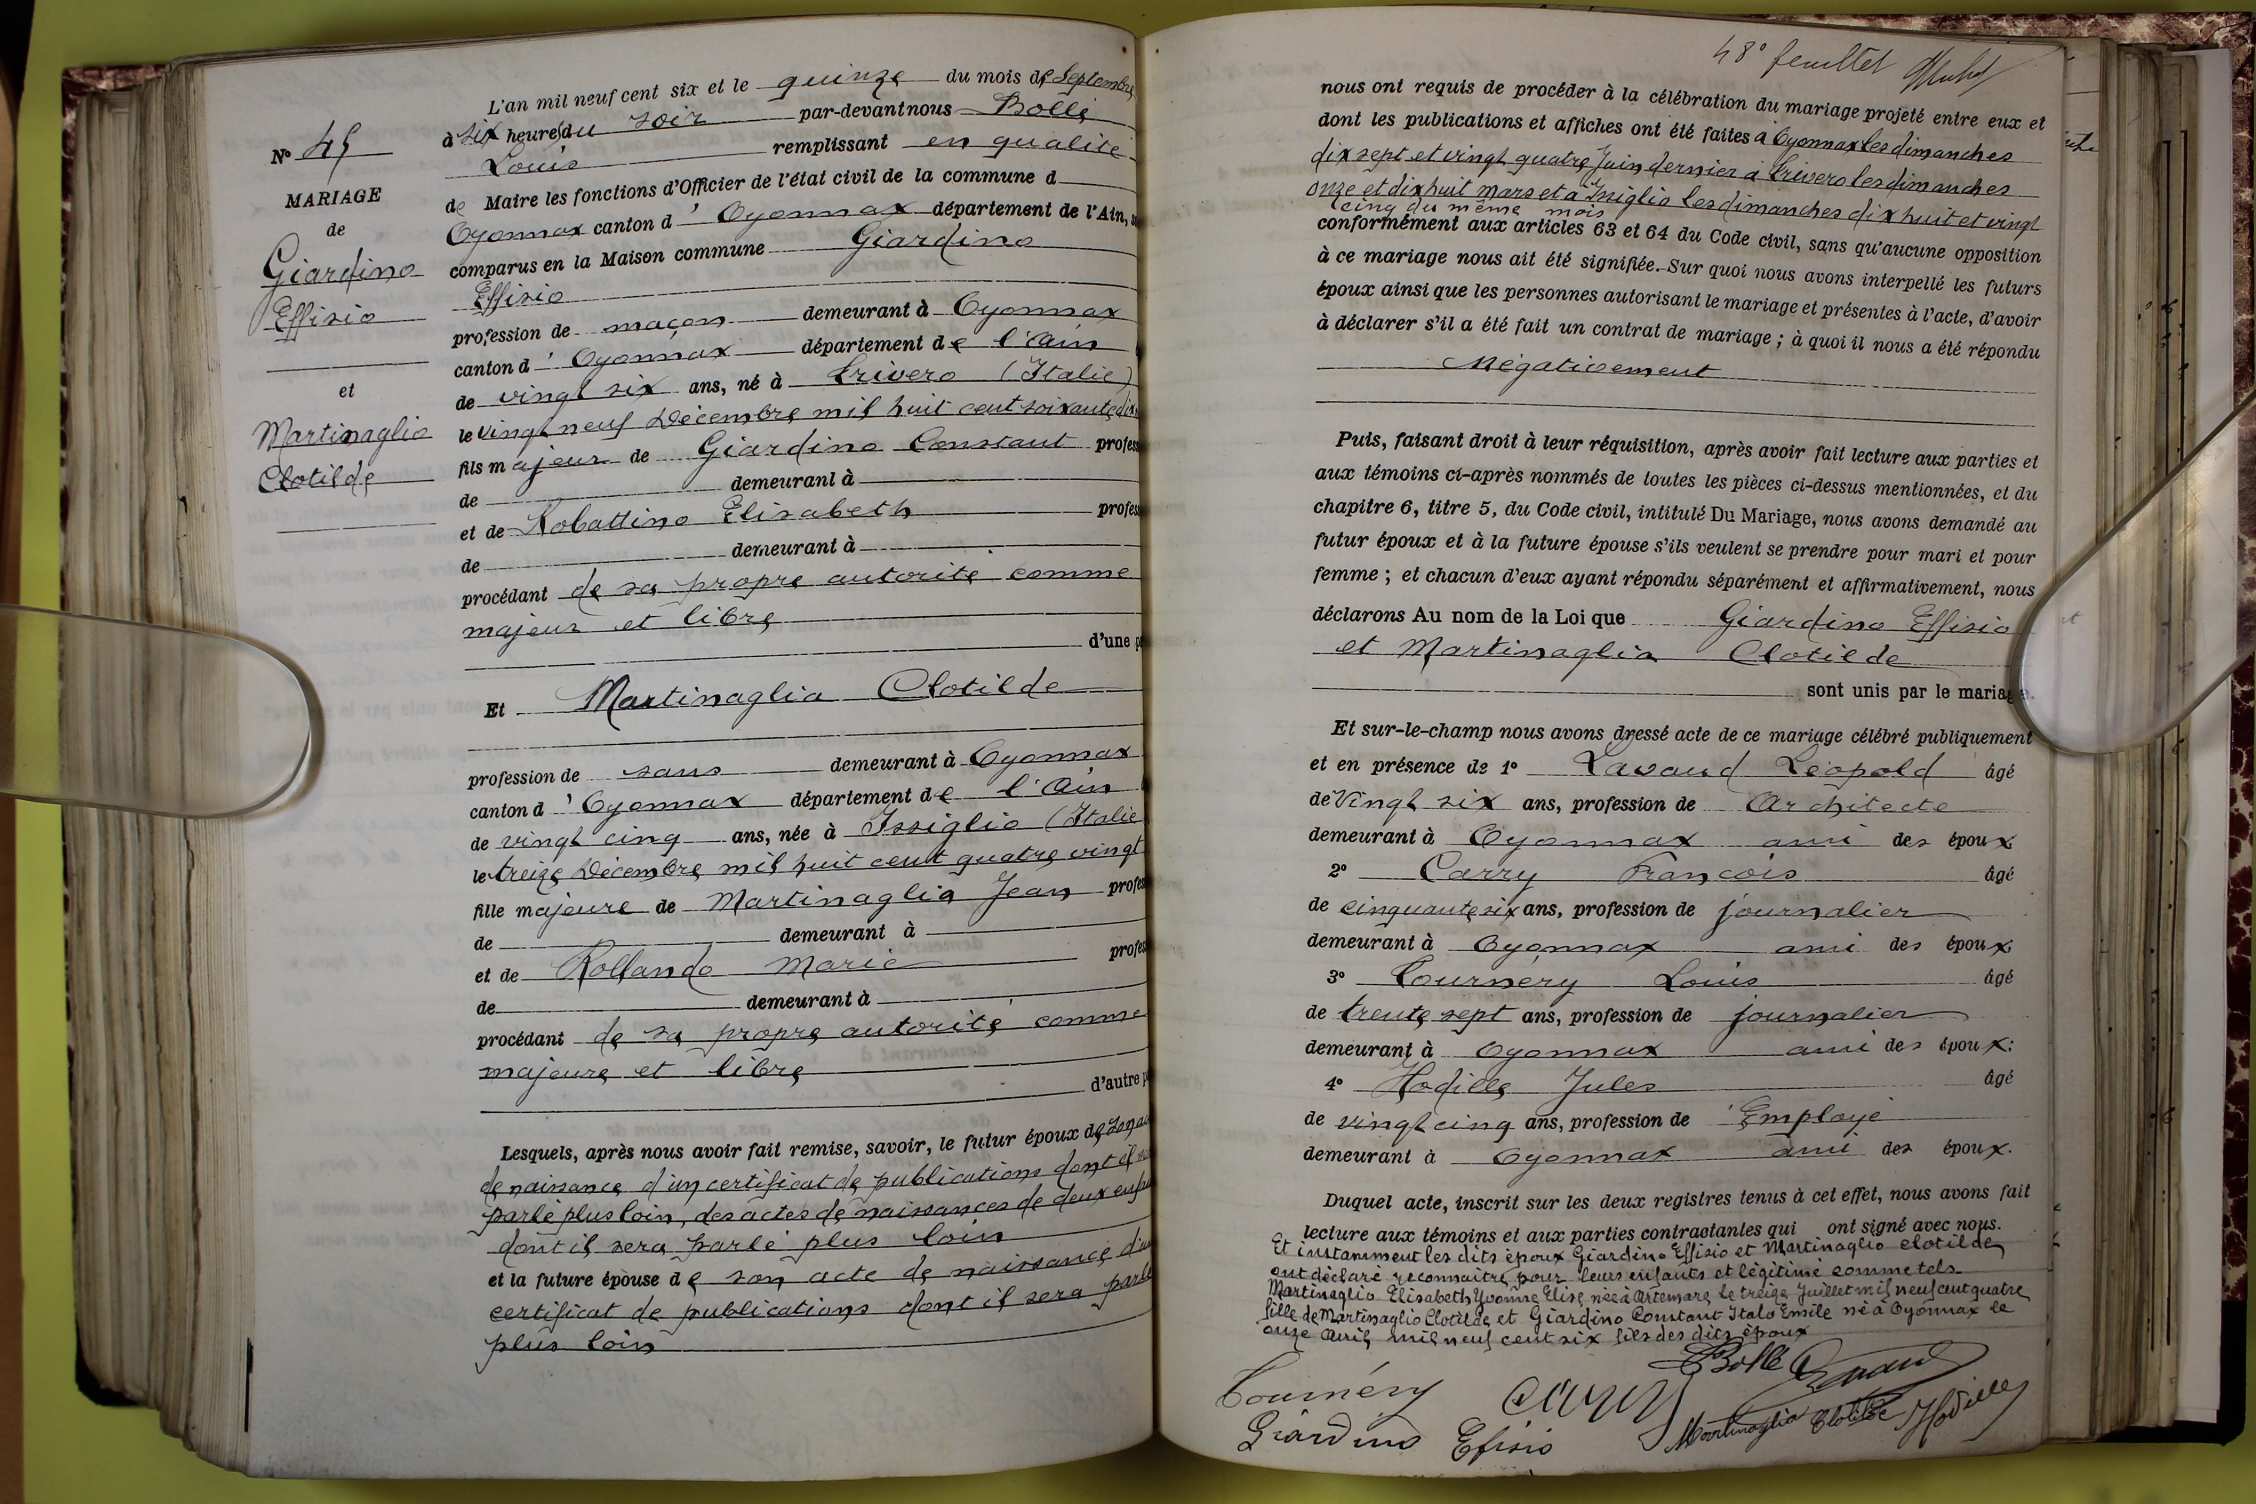 L'an mil neuf cent six et le quinze du mois de Septembre
à six heures du soir par-devant nous Bolle
Louis remplissant en qualité
de Maire les fonctions d'Officier de l'état civil de la commune d
Oyonnax canton d' Oyonnax département de l'Ain,
comparus en la Maison commune Giardino
Effisio
profession de maçon demeurant à Oyonnax
canton d' Oyonnax département de l'Ain
de vingt six ans, né à Trivero (Italie)
le vingt neuf Décembre mil huit cent soixante dix
fils majeur de Giardino Constant profess
de demeurant à
et de Robattino Elisabeth profess
de demeurant à
procédant de sa propre autorité comme
majeur et libre
d'une p
Et Martinaglia Clotilde
profession de sans demeurant à Oyonnax
canton d' Oyonnax département de l'Ain
de vingt cinq ans, née à Issiglio (Italie
le treize Décembre mil huit cent quatre vingt
fille majeure de Martinaglia Jean profes
de demeurant à
et de Rollando Marie profes
de demeurant à
procédant de sa propre autorité comme
majeure et libre
d'autre p
Lesquels, après nous avoir fait remise, savoir, le futur époux de son
de naissance d'un certificat de publications dont il
parlé plus loin, des actes de naissances de deux enf
dont il sera parlé plus loin
et la future épouse de son acte de naissance d'un
certificat de publications dont il sera parlé
plus loin
N° 45
MARIAGE
de
Giardino
Effisio
et
Martinaglio
Clotilde
48e feuillet
nous ont requis de procéder à la célébration du mariage projeté entre eux et
dont les publications et affiches ont été faites à Oyonnax les dimanches
dix sept et vingt quatre Juin dernier à Trivero les dimanches
onze et dix huit mars et à Issiglio les dimanches dix huit et vingt
cinq du même mois
conformément aux articles 63 et 64 du Code civil, sans qu'aucune opposition
à ce mariage nous ait été signifiée. Sur quoi nous avons interpellé les futurs
époux ainsi que les personnes autorisant le mariage et présentes à l'acte, d'avoir
à déclarer s'il a été fait un contrat de mariage ; à quoi il nous a été répondu
Négativement
Puis, faisant droit à leur réquisition, après avoir fait lecture aux parties et
aux témoins ci-après nommés de toutes les pièces ci-dessus mentionnées, et du
chapitre 6, titre 5, du Code civil, intitulé Du Mariage, nous avons demandé au
futur époux et à la future épouse s'ils veulent se prendre pour mari et pour
femme ; et chacun d'eux ayant répondu séparément et affirmativement, nous
déclarons Au nom de la Loi que Giardino Effisio
et Martinaglia Clotilde
sont unis par le mariage.
Et sur-le-champ nous avons dressé acte de ce mariage célébré publiquement
et en présence de 1° Lavaud Léopold âgé
de Vingt six ans, profession de Architecte
demeurant à Oyonnax ami des époux
2° Carry François âgé
de cinquante six ans, profession de journalier
demeurant à Oyonnax ami des époux;
3° Tournéry Louis âgé
de trente sept ans, profession de journalier
demeurant à Oyonnax ami des époux;
4° Hodille Jules âgé
de vingt cinq ans, profession de Employé
demeurant à Oyonnax ami des époux.
Duquel acte, inscrit sur les deux registres tenus à cet effet, nous avons fait
lecture aux témoins et aux parties contractantes qui ont signé avec nous.
Et instamment les dits époux Giardino Effisio et Martinaglio Clotilde
ont déclaré reconnaître pour leurs enfants et légitimé comme tels
Martinaglio Elisabeth Yvonne Elise née à Artemare le treize Juillet mil neuf cent quatre
fille de Martinaglio Clotilde et Giardino Constant Italo Emile né à Oyonnax le
onze Avril mil neuf cent six fils des dits époux
Bolle Lavaud
Tournéry Carry
Giardino Efisio Martinaglio Clotilde Hodille